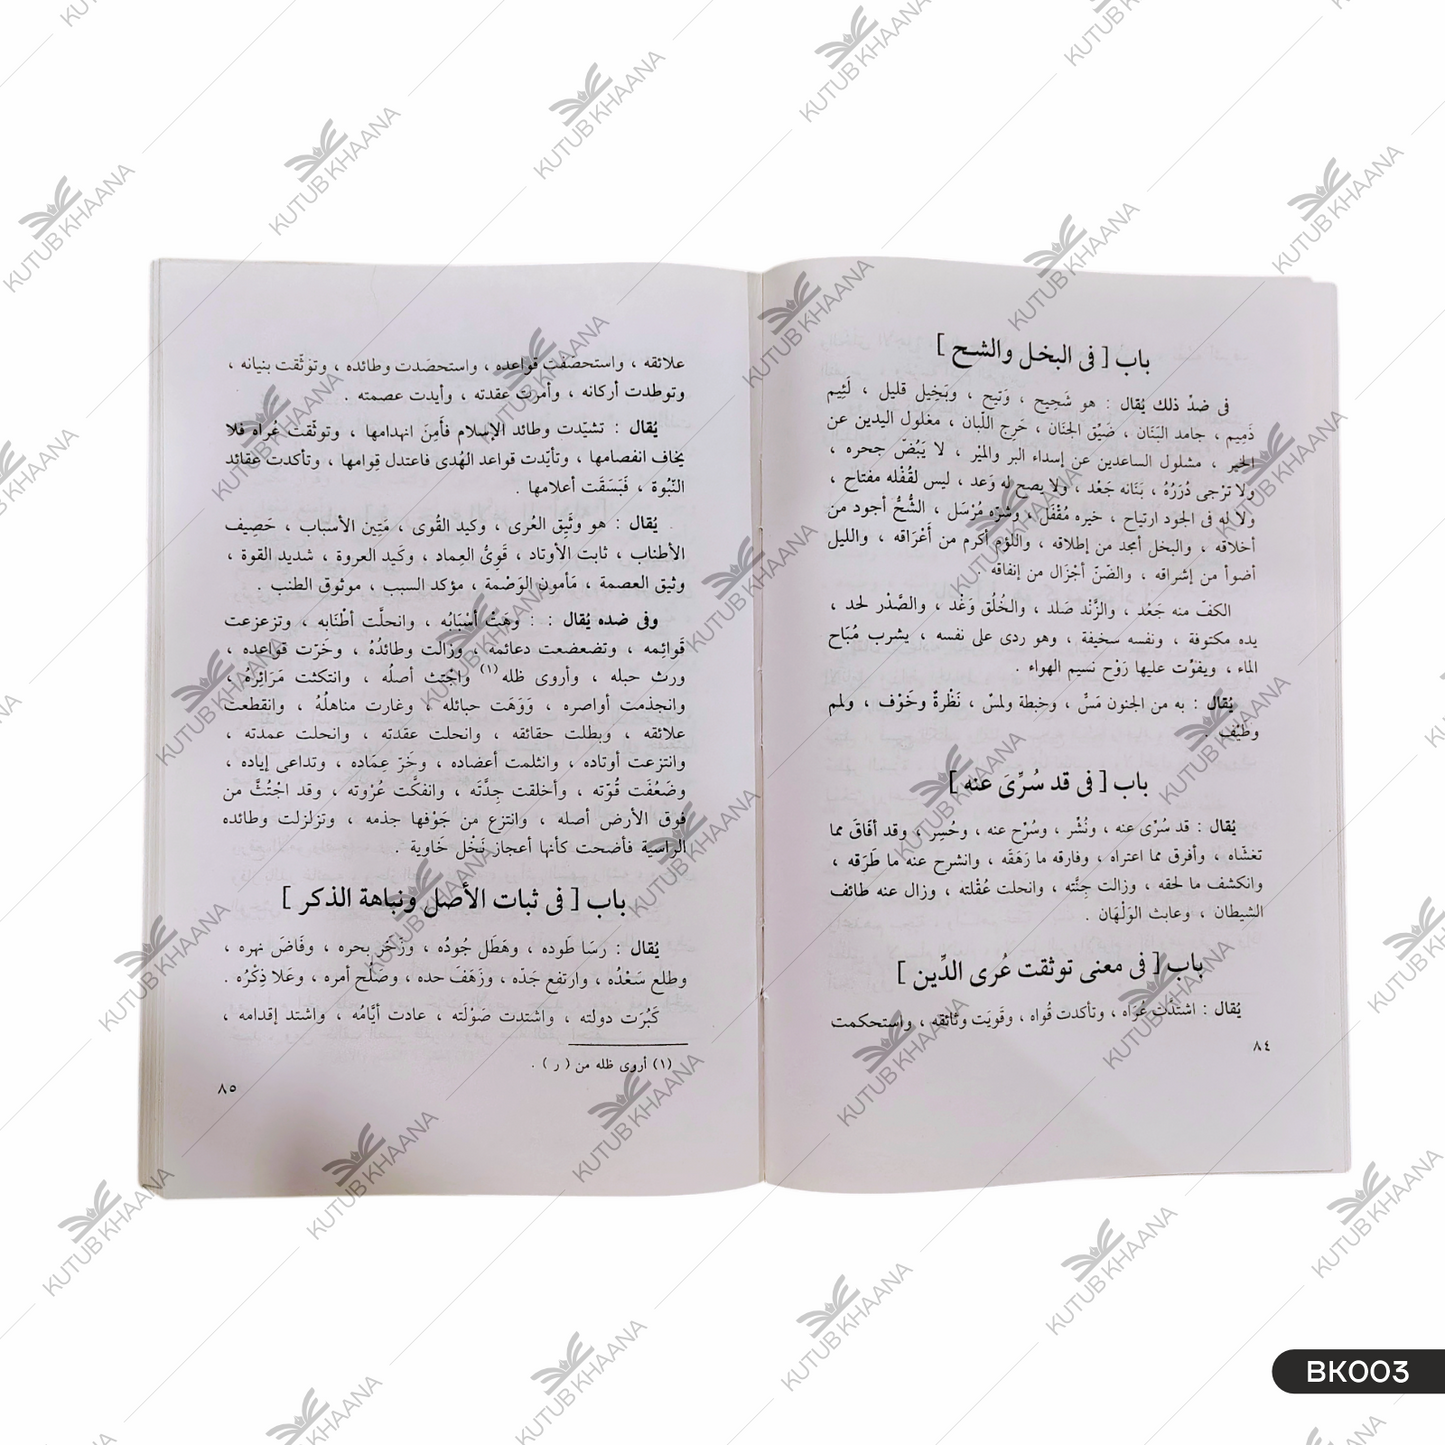 باب [ فى البخل والشح ]
فى ضدّ ذلك يُقال : هو شَحِيح ، وَتِيح ، وبَخِيل قليل ، لَئِيم
ذَمِيم ، جامد البَنَان ، ضَيِّق الجنَان ، حَرِج اللّبان ، مغلول اليدين عن
الخير ، مشلول الساعدين عن إسداء البر والميْر ، لا يَبُضّ جحره ،
ولا تُرْجى دُرَرُهُ ، بَنَانه جَعْد ، ولا يصح له وَعد ، ليس لقُفْله مفتاح ،
ولا له فى الجود ارتياح ، خيره مُقْفَل ، وشرّه مُرْسَل ، الشُّحُّ أجود من
أخلاقه ، والبخل أمجد من إطلاقه ، واللؤم أكرم من أَعْرَاقه ، والليل
أضوأ من إشراقه ، والضّنّ أجْزَال من إنفاقه .
الكفّ منه جَعْد ، والزَّند صَلد ، والخُلُق وَغْد ، والصَّدْر لحد ،
يده مكتوفة ، ونفسه سخيفة ، وهو ردى على نفسه ، يشرب مُبَاح
الماء ، ويفوّت عليها رَوْح نسيم الهواء .
يُقال : به من الجنون مَسٌّ ، وخبطة ولمسٌ ، نَظْرةٌ وخَوْف ، ولمم
وطَيْف .
باب [ فى قد سُرِّىَ عنه ]
يُقال : قد سُرّى عنه ، ونُشْر ، وسُرّح عنه ، وحُسِر ، وقد أفَاقَ مما
تغشّاه ، وأفرق مما اعتراه ، وفارقه ما رَهَقَه ، وانشرح عنه ما طَرَقه ،
وانكشف ما لحقه ، وزالت جِنَّته ، وانحلت عُقْلته ، وزال عنه طائف
الشيطان ، وعابث الوَلْهَان .
باب [ فى معنى توثقت عُرى الدِّين ]
يُقال : اشتدّت عُرَاه ، وتأكدت قُواه ، وقَوِيَت وثائقه ، واستحكمت
٨٤
علائقه ، واستحصفت قواعده ، واستحصَدت وطائده ، وتوَثّقت بنيانه ،
وتوطدت أركانه ، وأُمرت عقدته ، وأيدت عصمته .
يُقال : تشيّدت وطائد الإسلام فأَمِنَ انهدامها ، وتوثّقت عُراه فلا
يخاف انفصامها ، وتأيّدت قواعد الهُدى فاعتدل قِوامها ، وتأكدت عقائد
النّبُوة ، فَبَسَقَت أعلامها .
يُقال : هو وثَيق العُرى ، وكيد القُوى ، مَتِين الأسباب ، حَصِيف
الأطناب ، ثابت الأوتاد ، قَوِىُّ العِماد ، وكَيد العروة ، شديد القوة ،
وثيق العصمة ، مَأمون الوَصْمة ، مؤكد السبب ، موثوق الطنب .
وفى ضده يُقال : : وَهَتْ أسْبَابُه ، وانحلَّت أطْنَابه ، وتزعزعت
قَوائِمه ، وتضعضعت دعائمه ، وزالت وطائدُهُ ، وخرّت قواعده ،
ورث حبله ، وأروى ظله(١) واجْتث أصلُه ، وانتكثت مَرَائِرهُ ،
وانجذمت أواصره ، وَوَهَت حبائله ، وغارت مناهلُهُ ، وانقطعت
علائقه ، وبطلت حقائقه ، وانحلت عقدته ، وانحلت عمدته ،
وانتزعت أوتاده ، وانثلمت أعضاده ، وخَرّ عِمَاده ، وتداعى إياده ،
وضَعُفَت قُوّته ، وأخلقت جِدَّتَه ، وانفكَّت عُرْوته ، وقد اجْتُثَّ من
فوق الأرض أصله ، وانتزع من جَوْفها جذمه ، وتزلزلت وطائده
الراسية فأضحت كأنها أعجاز نَخْل خَاوية .
باب [ فى ثبات الأصل ونباهة الذكر ]
يُقال : رسَا طَوده ، وهَطَل جُودُه ، وزَخَر بحره ، وفَاضَ نهره ،
وطلع سَعْدُه ، وارتفع جَدّه ، وزَهَفَ حده ، وصَلُح أمره ، وعَلا ذِكْرُه .
كَبُرَت دولته ، واشتدت صَوْلَته ، عادت أيَّامُه ، واشتد إقدامه ،
(١) أروى ظله من ( ر ) .
٨٥
KUTUB KHAANA
BK003